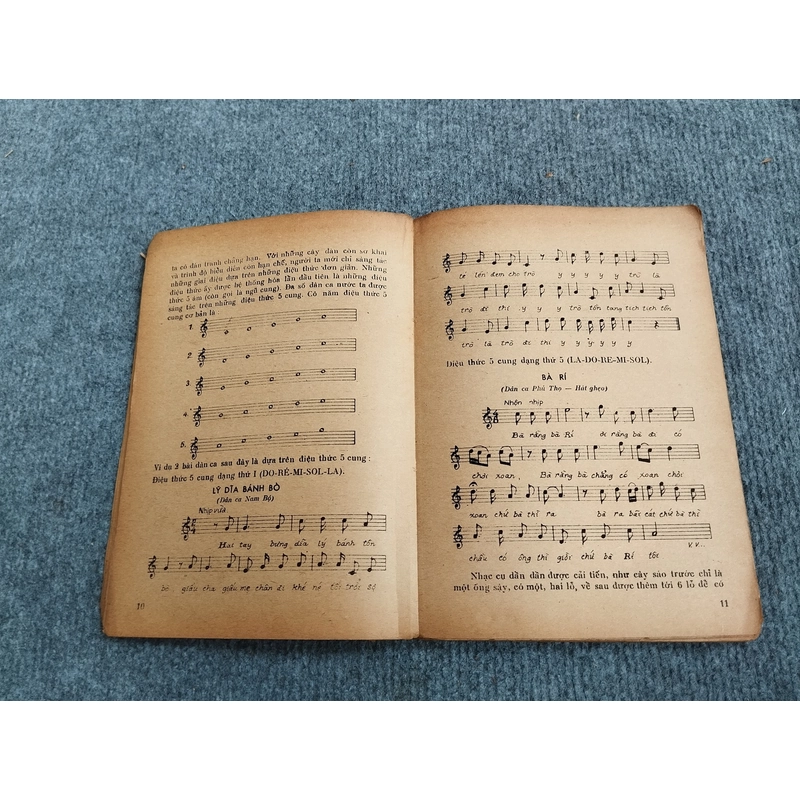 ta có đàn tranh chẳng hạn. Với những cây đàn còn sơ khai
và trình độ biểu diễn còn hạn chế, người ta mới chỉ sáng tác
những giai điệu dựa trên những điệu thức đơn giản. Những
điệu thức ấy được hệ thống hóa lần đầu tiên là những điệu
thức 5 âm (còn gọi là ngũ cung). Đa số dân ca nước ta được
sáng tác trên những điệu thức 5 cung. Có năm điệu thức 5
cung cơ bản là
1.
2.
3.
4.
5.
Ví dụ 2 bài dân ca sau đây là dựa trên điệu thức 5 cung :
Điệu thức 5 cung dạng thứ I (DO-RÉ-MI-SOL-LA).
LÝ DĨA BÁNH BÒ
(Dân ca Nam Bộ)
Nhịp vừa
Hai tay bưng dĩa lý bánh tồn
bò giấu cha giấu mẹ chân đi khé né tối trời
10
té lén đem cho trò y y y y y trò là
trò đi thi y y y trò tồn tang tích tịch tồn
trò là trò đi thi y y y y y
Điệu thức 5 cung dạng thứ 5 (LA-DO-RE-MI-SOL).
BÀ RÍ
(Dân ca Phú Thọ — Hát ghẹo)
Nhộn nhịp
Bà rằng bà Rí đi rằng bà đi có
chơi xoan, Bà rằng bà chẳng có xoan chơi
xoan chứ bà thì ra bà ra bắt cát chứ bà thì
chầu có ông thì giỗi chứ bà Rí tôi v.v...
Nhạc cụ dần dần được cải tiến, như cây sáo trước chỉ là
một ống sậy, có một, hai lỗ, về sau được thêm tới 6 lỗ để có
11